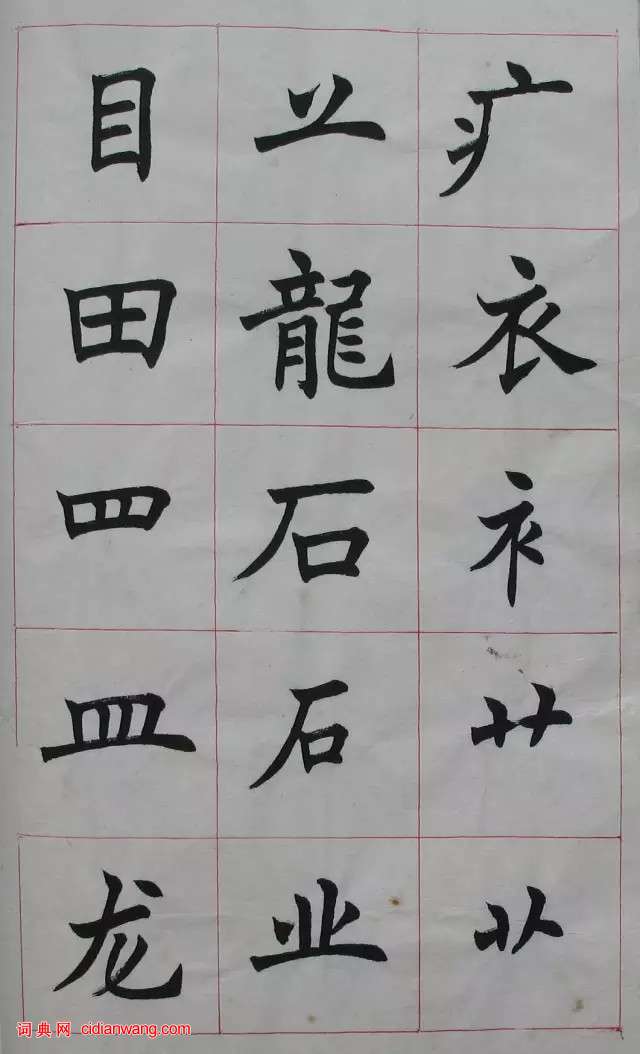 疒衣衤艹艹
䒑龍石石业
目田罒皿龙
词典网 cidianwang.com